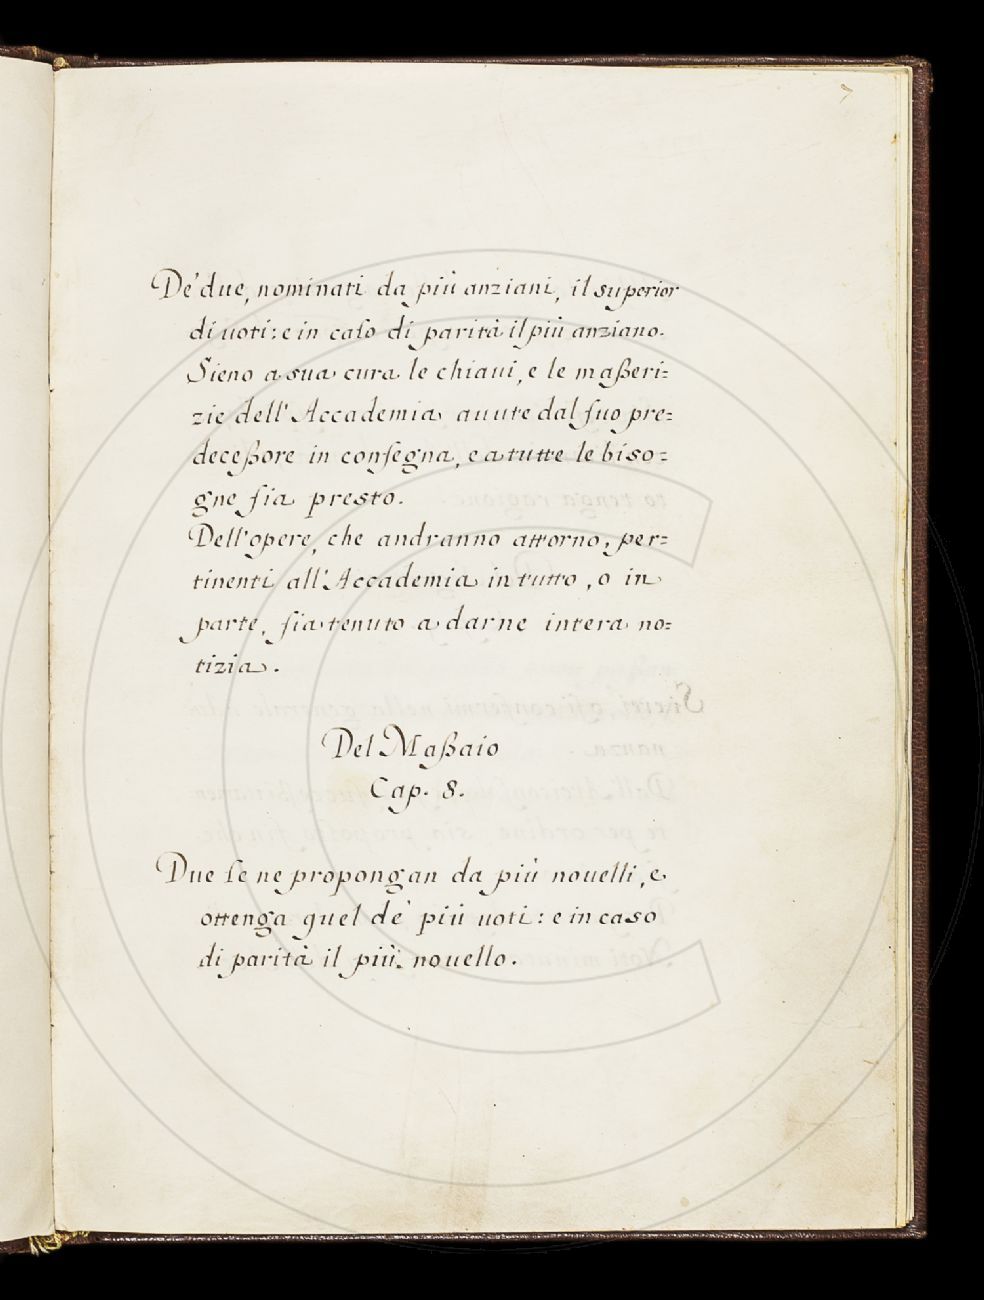 7
De' due, nominati da più anziani, il superior
di uoti: e in caſo di parità il più anziano.
Sieno a sua cura le chiaui, e le maßeri=
zie dell'Accademia auute dal ſuo pre=
deceßore in conſegna, e a tutte le biso=
gne ſia presto.
Dell'opere, che andranno attorno, per=
tinenti all'Accademia in tutto, o in
parte, ſia tenuto a darne intera no=
tizia.
Del Maßaio
Cap. 8.
Due ſe ne propongan da più nouelli, e
ottenga quel de' più uoti: e in caso
di parità il più nouello.